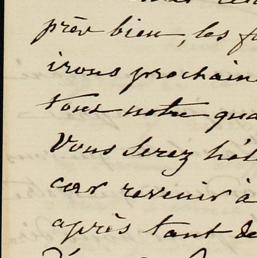 très bien, les f
irons prochain
tout notre qua
Vous serez hél
car revenir à
après tant de